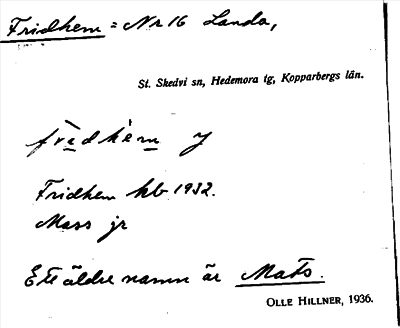 Fridhem = Nr 16 Landa,
St. Skedvi sn, Hedemora tg, Kopparbergs län.
frèdhèm y
Fridhem kb 1932.
Mass jr
Ett äldre namn är Mats.
OLLE HILLNER, 1936.